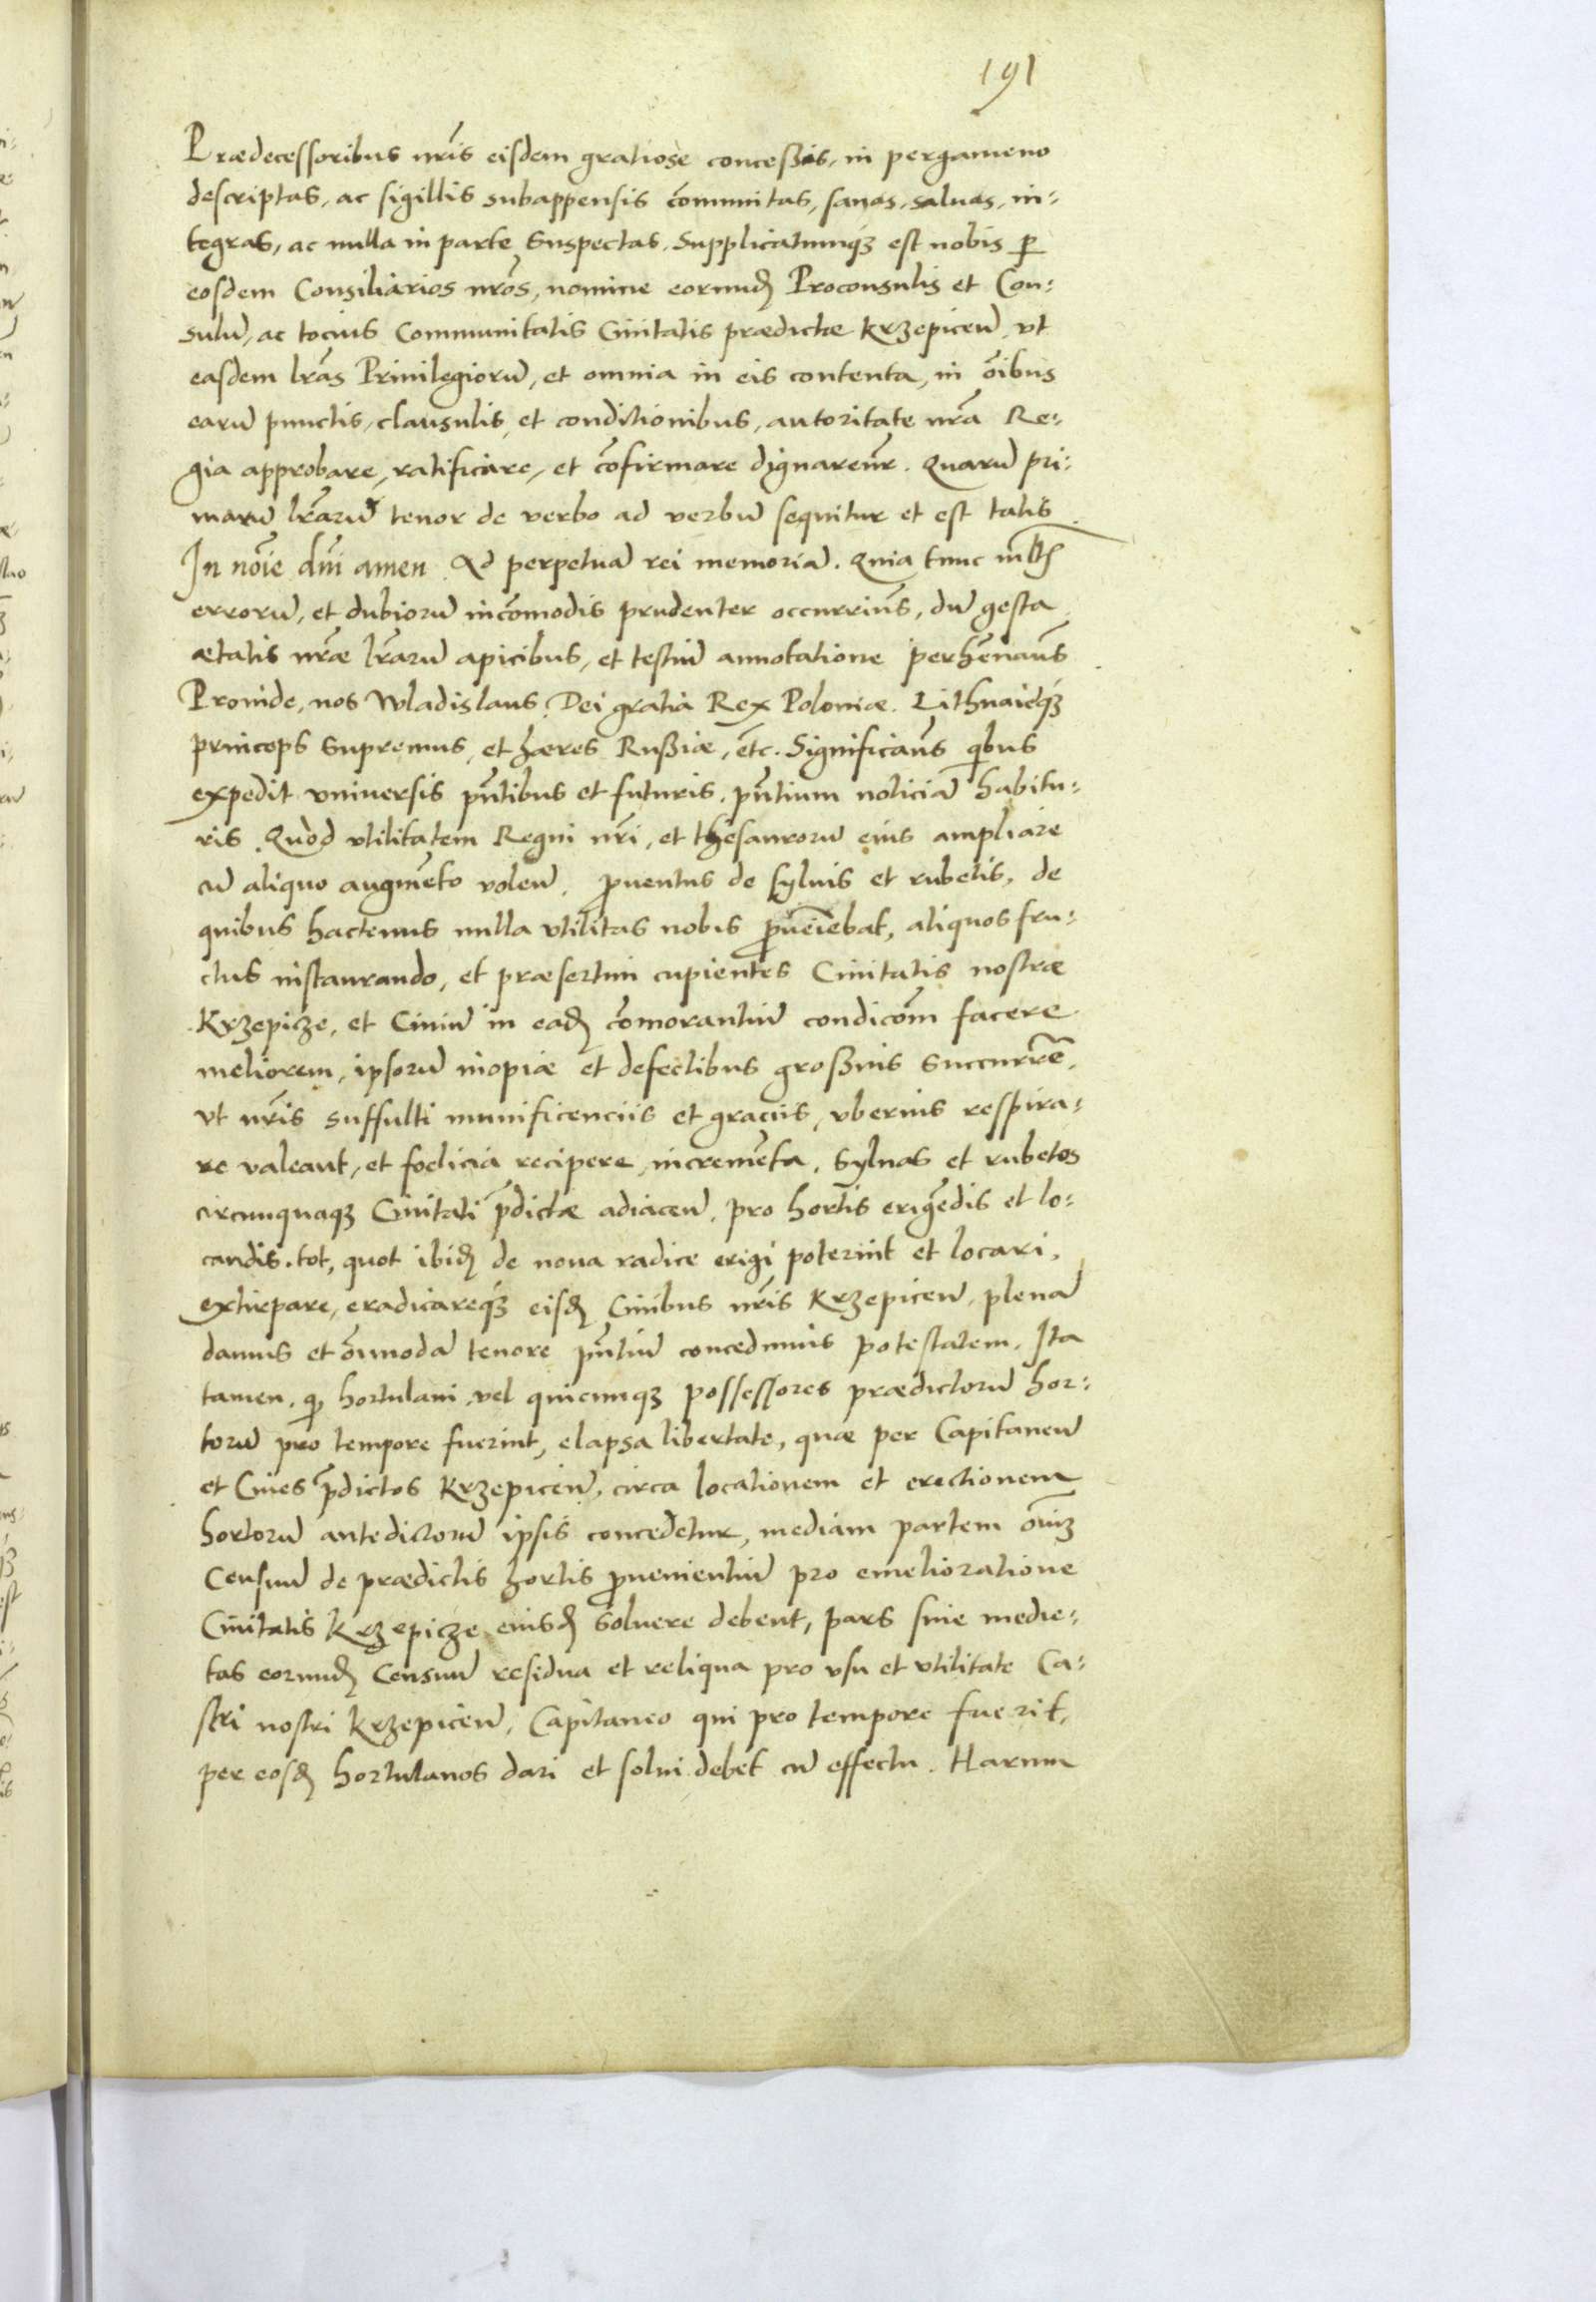 191
Prædecessoribus nr̃is eisdem gratiose conceßis, in pergameno
descriptas, ac sigillis subappensis com̃unitas, sanas, saluas, in-
tegras, ac nulla in parte suspectas. Supplicatumq̃ est nobis ꝑ
eosdem Consiliarios nr̃os, nomine eorund̃ Proconsulis et Con-
sulũ, ac tocius Communitatis Ciuitatis prædictæ Krzepiceñ, vt
easdem lr̃as Priuilegiorũ, et omnia in eis contenta, in õibus
earũ punctis, clausulis, et conditionibus, autoritate nr̃a Re-
gia approbare, ratificare, et cõfirmare dignarem̃r. Quarũ pri-
marũ lr̃arũ tenor de verbo ad verbũ sequitur et est talis
In nõie dñi amen. Ad perpetuã rei memoriã. Quia tunc ml̃tis
errorũ, et dubiorũ incõmodis prudenter occurrim̃s, dũ gesta
ætatis nr̃æ lr̃arũ apicibus, et testiũ annotatione perhẽnam̃s
Prouide, nos Wladislaus Dei gratia Rex Poloniæ. Lithuaieq̃
princeps supremus, et hæres Rußiæ, etc. Significam̃s q̃bus
expedit vniuersis pñtibus et futuris, pñtium noticiã habitu-
ris. Quod vtilitatem Regni nr̃i, et thesaurorũ eius ampliare
cũ aliquo augmẽto voleñ, ꝓuentus de syluis et rubetis, de
quibus hactenus nulla vtilitas nobis ꝓuẽiebat, aliquos fru-
ctus instaurando, et præsertim cupientes Ciuitatis nostræ
Krzepicze, et Ciuiũ in ead̃ cõmorantiũ condicõm facere
meliorem, ipsorũ inopiæ et defectibus großius succurrẽ,
vt nr̃is suffulti munificenciis et graciis, vberius respira-
re valeant, et foelicia recipere incremẽta, syluas et rubetos
circunquaq̃ Ciuitati p̃dictæ adiaceñ, pro hortis erigẽdis et lo-
candis, tot, quot ibid̃ de noua radice erigi poterint et locari,
extirpare, eradicareq̃ eisd̃ Ciuibus nr̃is Krzepiceñ, plenã
damus et õimodã tenore pñtiũ concedimus potestatem. Ita
tamen, q̃ hortulani, vel quicunq̃ possessores prædictorũ hor-
torũ pro tempore fuerint, elapsa libertate, quæ per Capitaneũ
et Ciues p̃dictos Krzepiceñ, circa locationem et erectionem
hortorũ antedictorũ ipsis concedetur, mediam partem õiũ
Censuũ de prædictis hortis ꝓuenientiũ pro emelioratione
Ciuitatis Krzepicze eiusd̃ soluere debent, pars siue medie-
tas eorund̃ Censuũ residua et reliqua pro vsu et vtilitate Ca-
stri nostri Krzepiceñ, Capitaneo qui pro tempore fuerit,
per eosd̃ hortulanos dari et solui debet cũ effectu. Harum